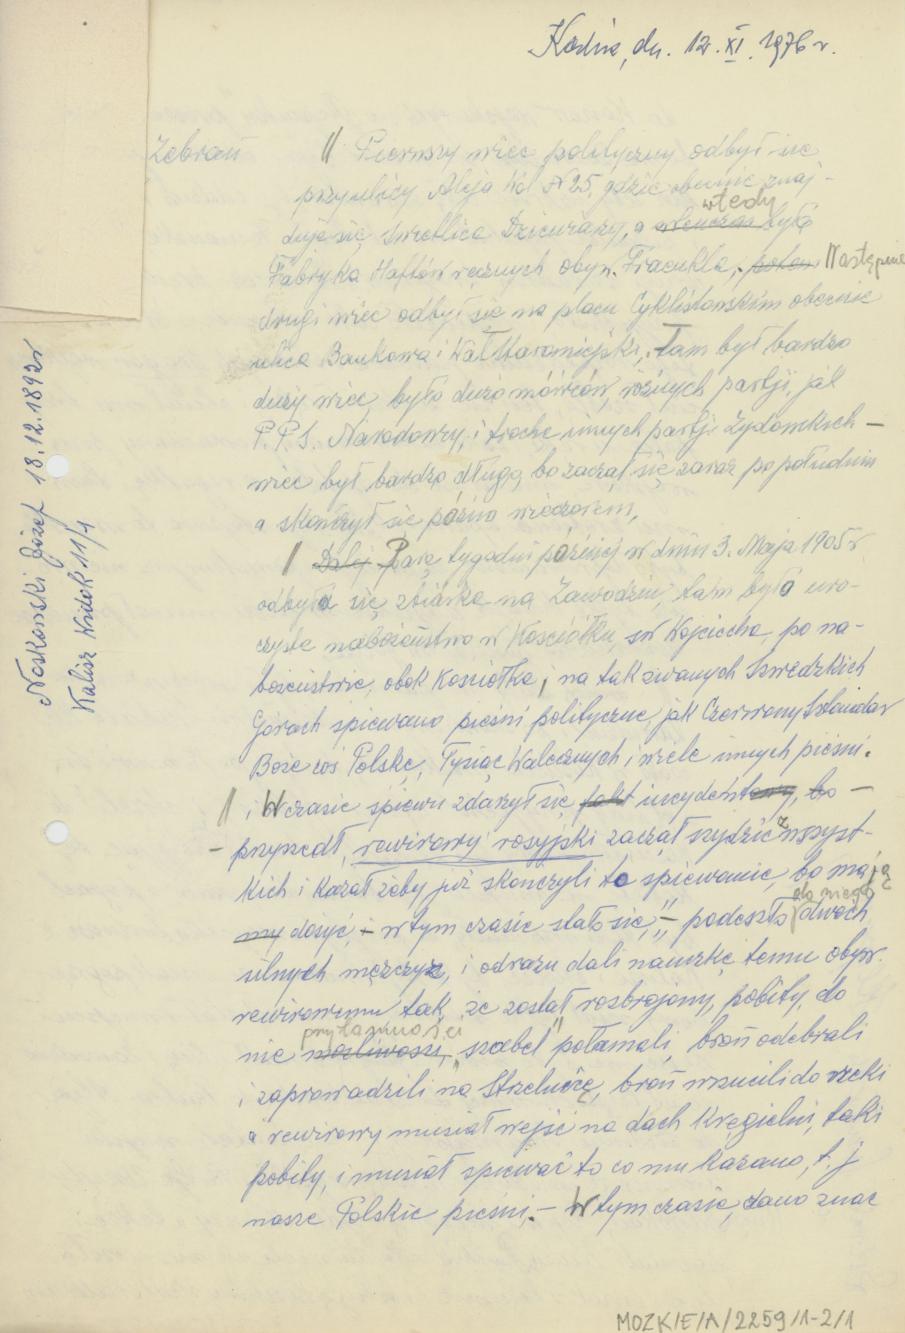 Kalisz, dn. 12.XI.1976 r.
Zebrań // Pierwszy wiec polityczny odbył się
przy ulicy Aleja Wol. N 25, gdzie obecnie znaj-
wtedy
duje się świetlica Dziewiarzy, a wówczas była
Fabryka Haftów ręcznych obyw. Fraenkla, potem Następnie
drugi wiec odbył się na placu Cyklistowskim obecnie
ulica Bankowa i Wał Staromiejski, tam był bardzo
duży wiec, było dużo mówców, różnych partji, jak
P.P.S. Narodowcy, i trochę innych partji Żydowskich –
wiec był bardzo długo, bo zaczął się zaraz po południu
a skończył się późno wieczorem,
/ Dalej Parę tygodni później w dniu 3. Maja 1905 r
odbyła się zbiórka na Zawodziu, tam było uro-
czyste nabożeństwo w Kościółku, św Wojciecha, po na-
bożeństwie, obok Kosiołka, na tak zwanych Szwedzkich
Górach śpiewano pieśni polityczne, jak Czerwony Sztandar
Boże coś Polskę, Tysiąc Walecznych i wiele innych pieśni.
// i W czasie śpiewu zdarzył się fakt incydentowy, bo –
– przyszedł, rewirowy rosyjski zaczął szydzić z wszyst-
kich i kazał żeby już skończyli to śpiewanie, bo mają
do niego
my dosyć, – w tym czasie stało się, – podeszło dwóch
silnych mężczyzn, i odrazu dali nauczkę temu obyw.
rewirowemu tak, że został rozbrojony, pobity, do
przytomności
nie możliwości, "szabel" połamali, broń odebrali
i zaprowadzili na Strzelnicę, broń wrzucili do rzeki
a rewirowy musiał wejść na dach Kręgielni, taki
pobity, i musiał śpiewać to co mu kazano, t. j
nasze Polskie pieśni. – W tym czasie, dano znać
Noskowski Józef 18.12.1892 r
Kalisz Widok 11/1
MOZK/E/A/2259/1-2/1